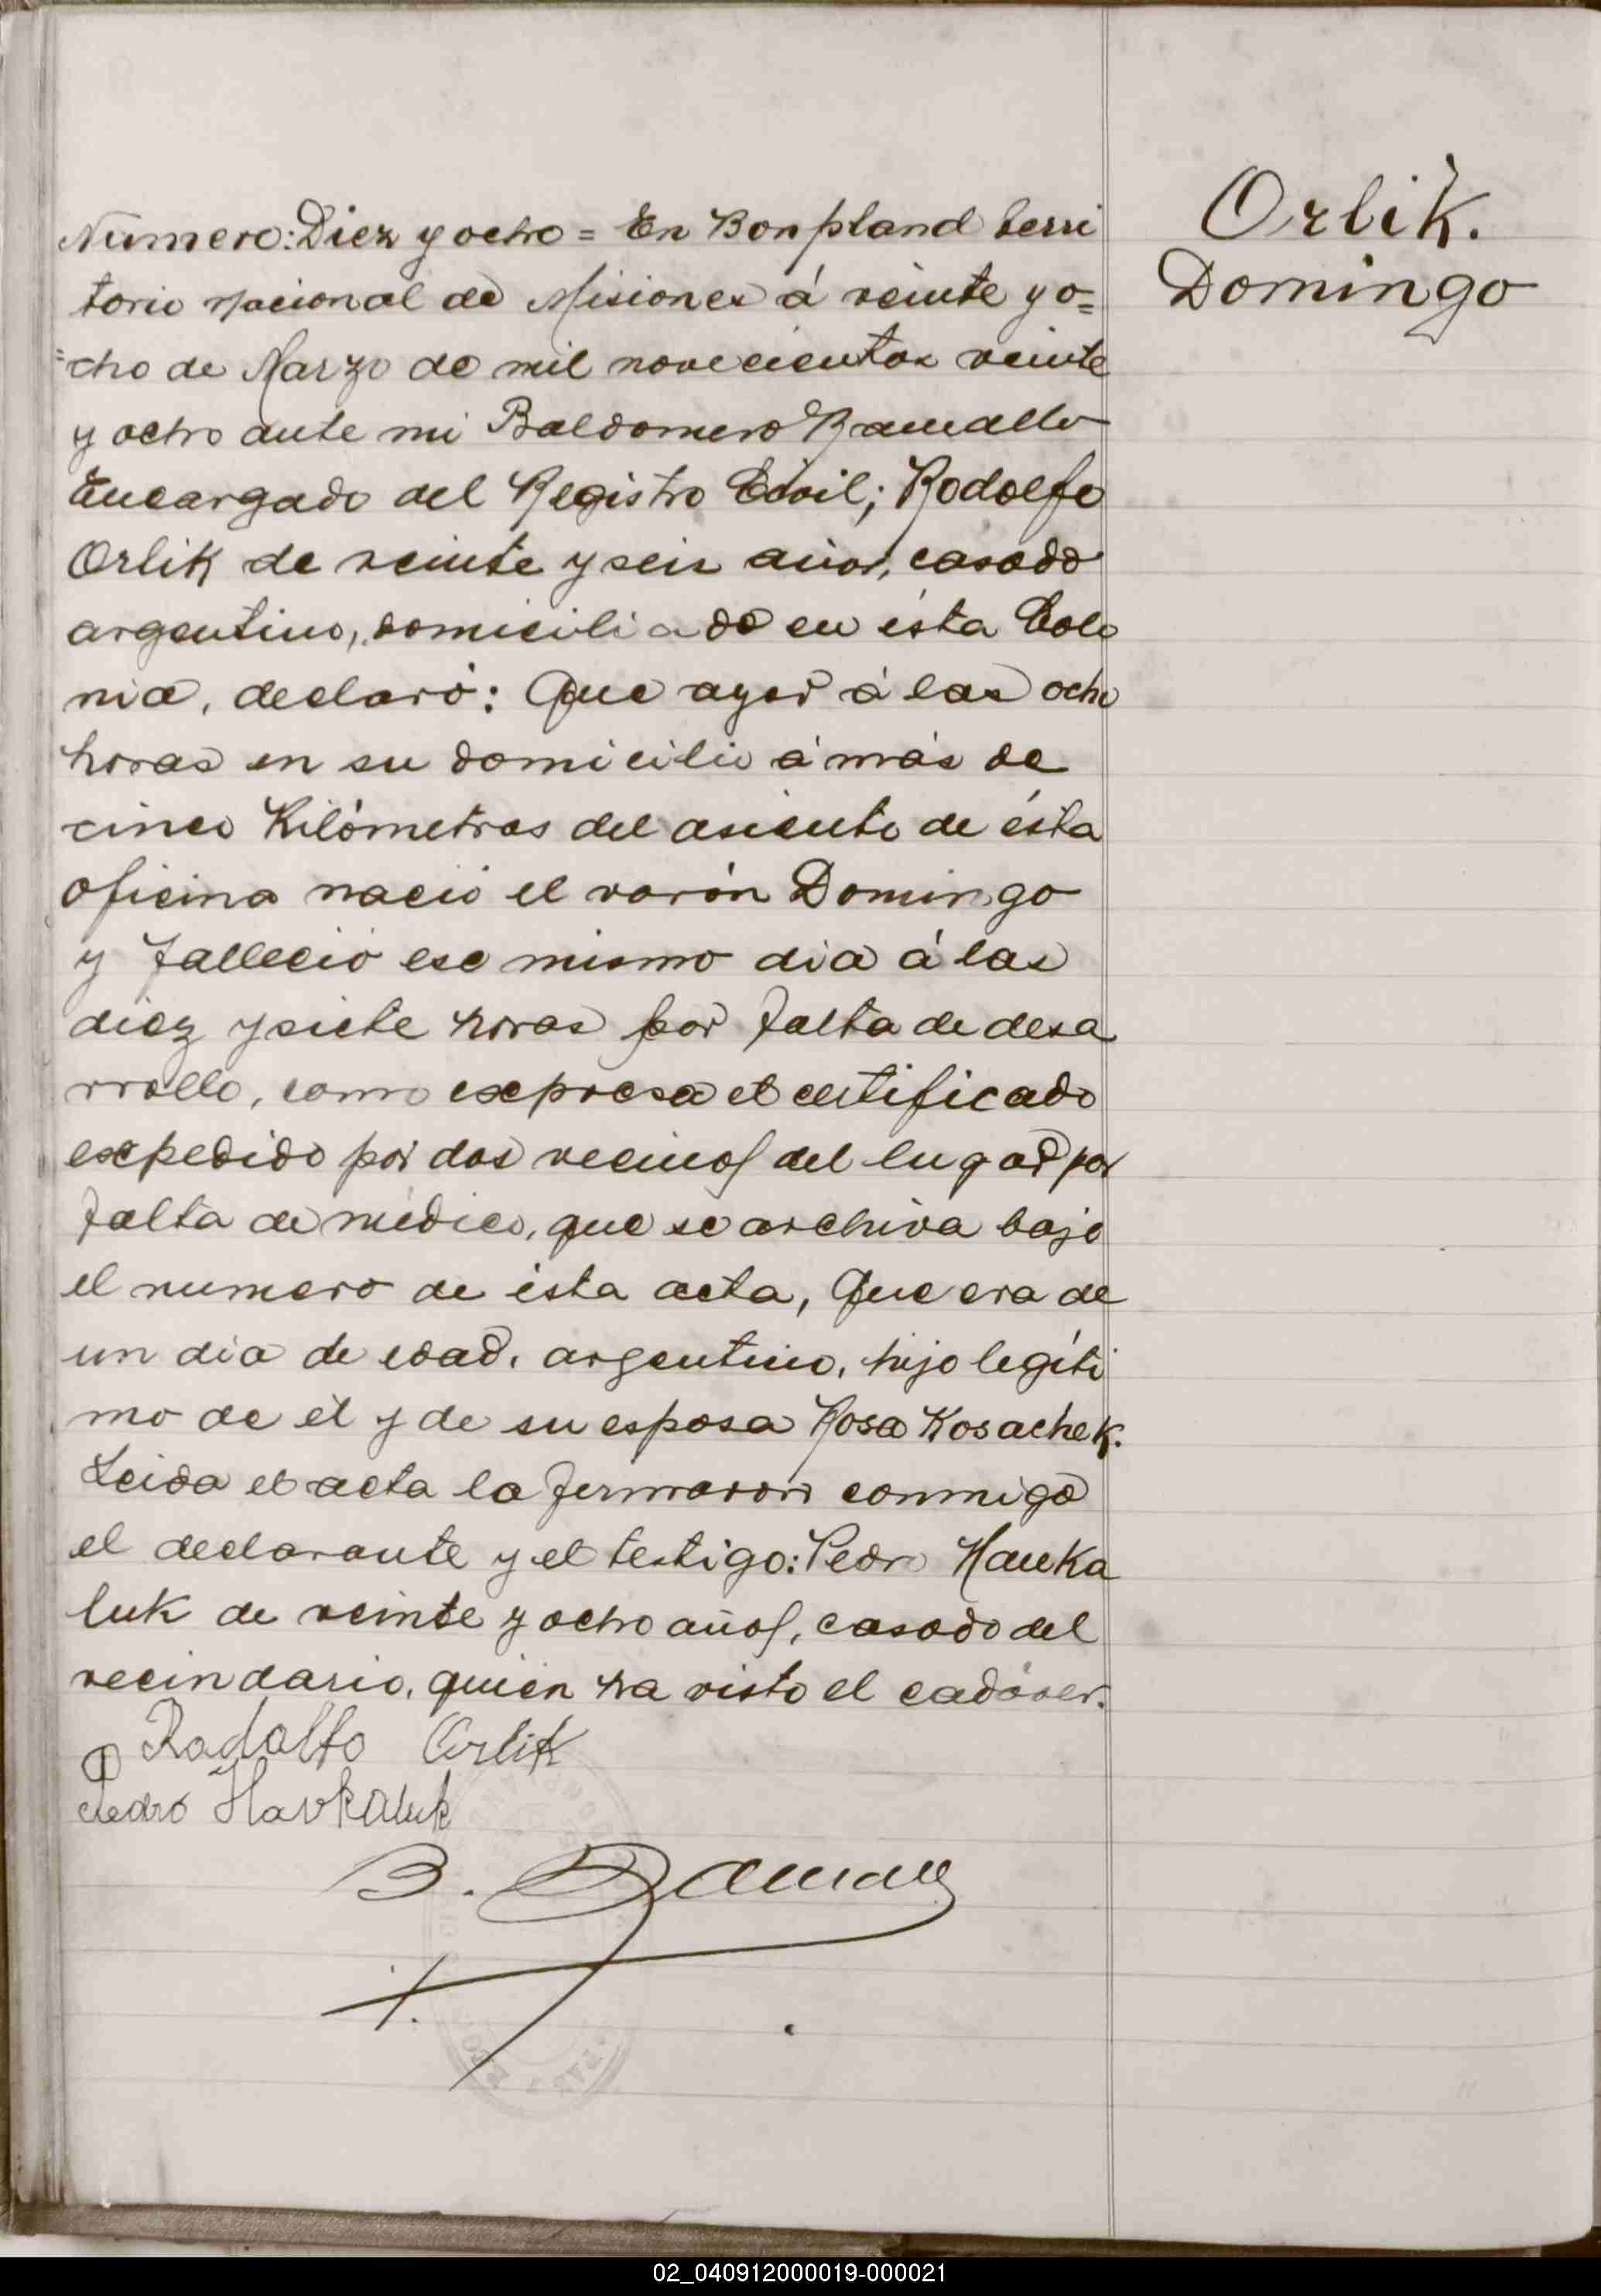 Numero: Diez y ocho = En Bonpland terri
torio nacional de Misiones á veinte y o=
=cho de Marzo de mil novecientos veinte
y ocho ante mi Baldomero Ramallo
Encargado del Registro Civil; Rodolfo
Orlik de veinte y seis años, casado
argentino, domiciliado en ésta Colo
nia, declaró: Que ayer á las ocho
horas en su domicilio á más de
cinco Kilómetros del asiento de ésta
oficina nació el varón Domingo
y falleció ese mismo dia á las
diez y siete horas por falta de desa
rrollo, como expresa el certificado
expedido por dos vecinos del lugar por
falta de médico, que se archiva bajo
el numero de ésta acta, Que era de
un dia de edad, argentino, hijo legíti
mo de él y de su esposa Rosa Kosachek.
Leida el acta la firmaron conmigo
el declarante y el testigo: Pedro Hauka
luk de veinte y ocho años, casado del
vecindario, quién ha visto el cadáver.
Radolfo Orlik
Pedro Havkaluk
B. Ramallo
Orlik.
Domingo
02_040912000019-000021